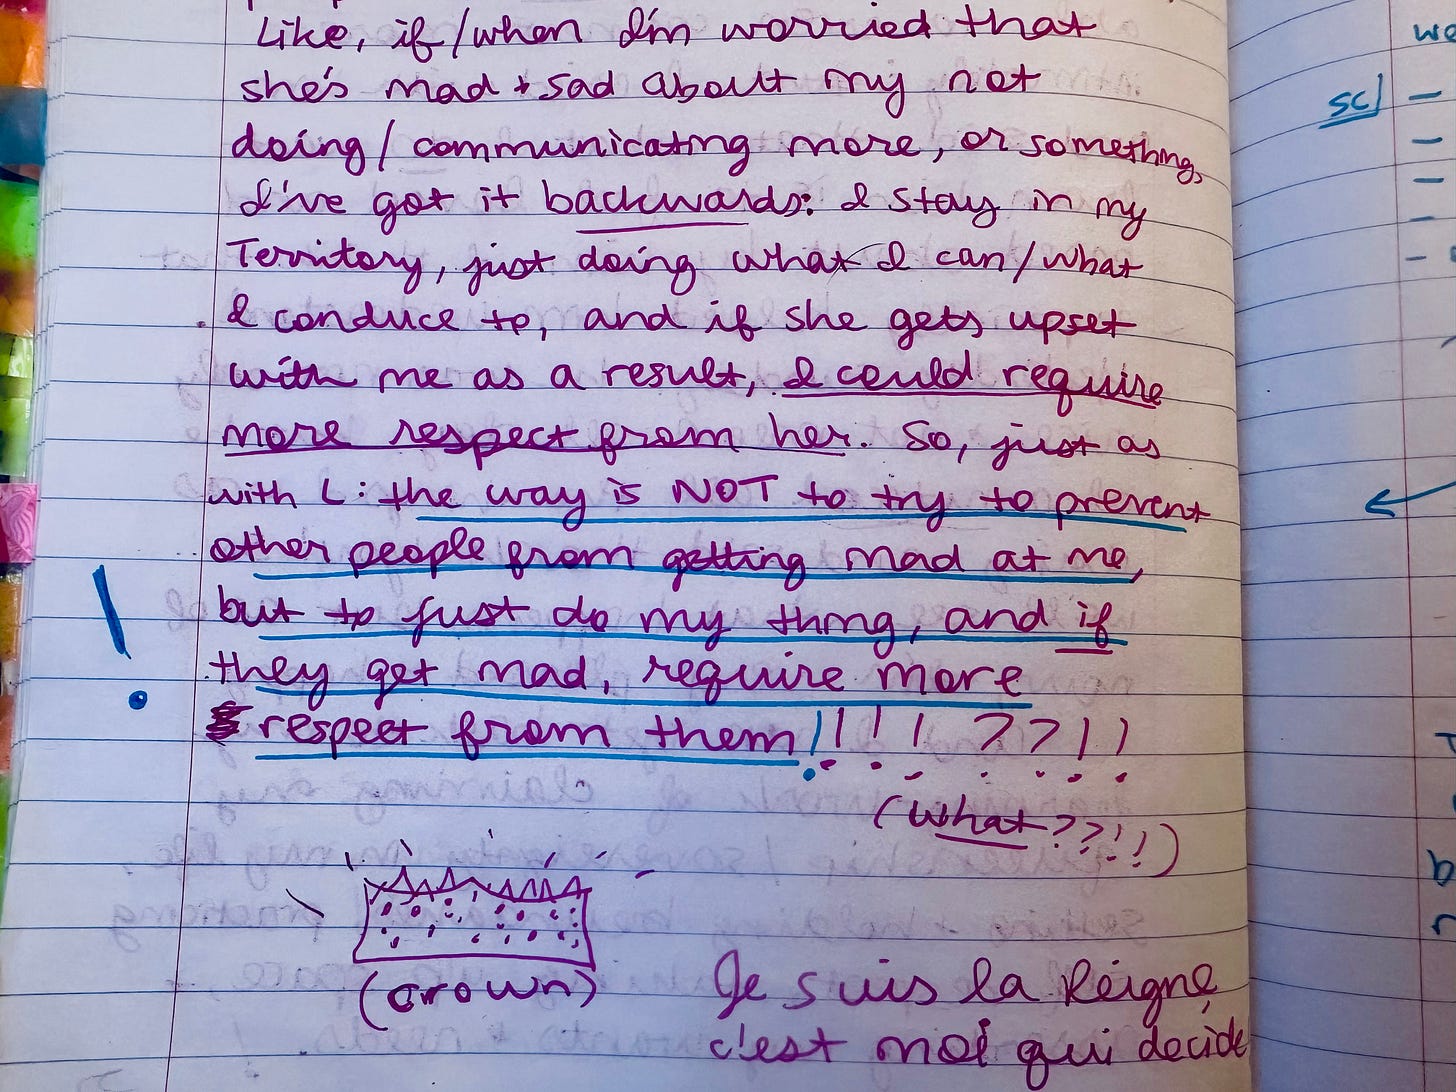 Like, if/when I'm worried that
she's mad + sad about my not
doing/communicating more, or something,
I've got it backwards: I stay in my
Territory, just doing what I can/what
I conduce to, and if she gets upset
with me as a result, I could require
more respect from her. So, just as
with L: the way is NOT to try to prevent
other people from getting mad at me,
but to just do my thing, and if
they get mad, require more
respect from them!!!!! ??!!
(what??!!)
!
(crown)
Je suis la Reigne,
c'est moi qui decide
we
sc)